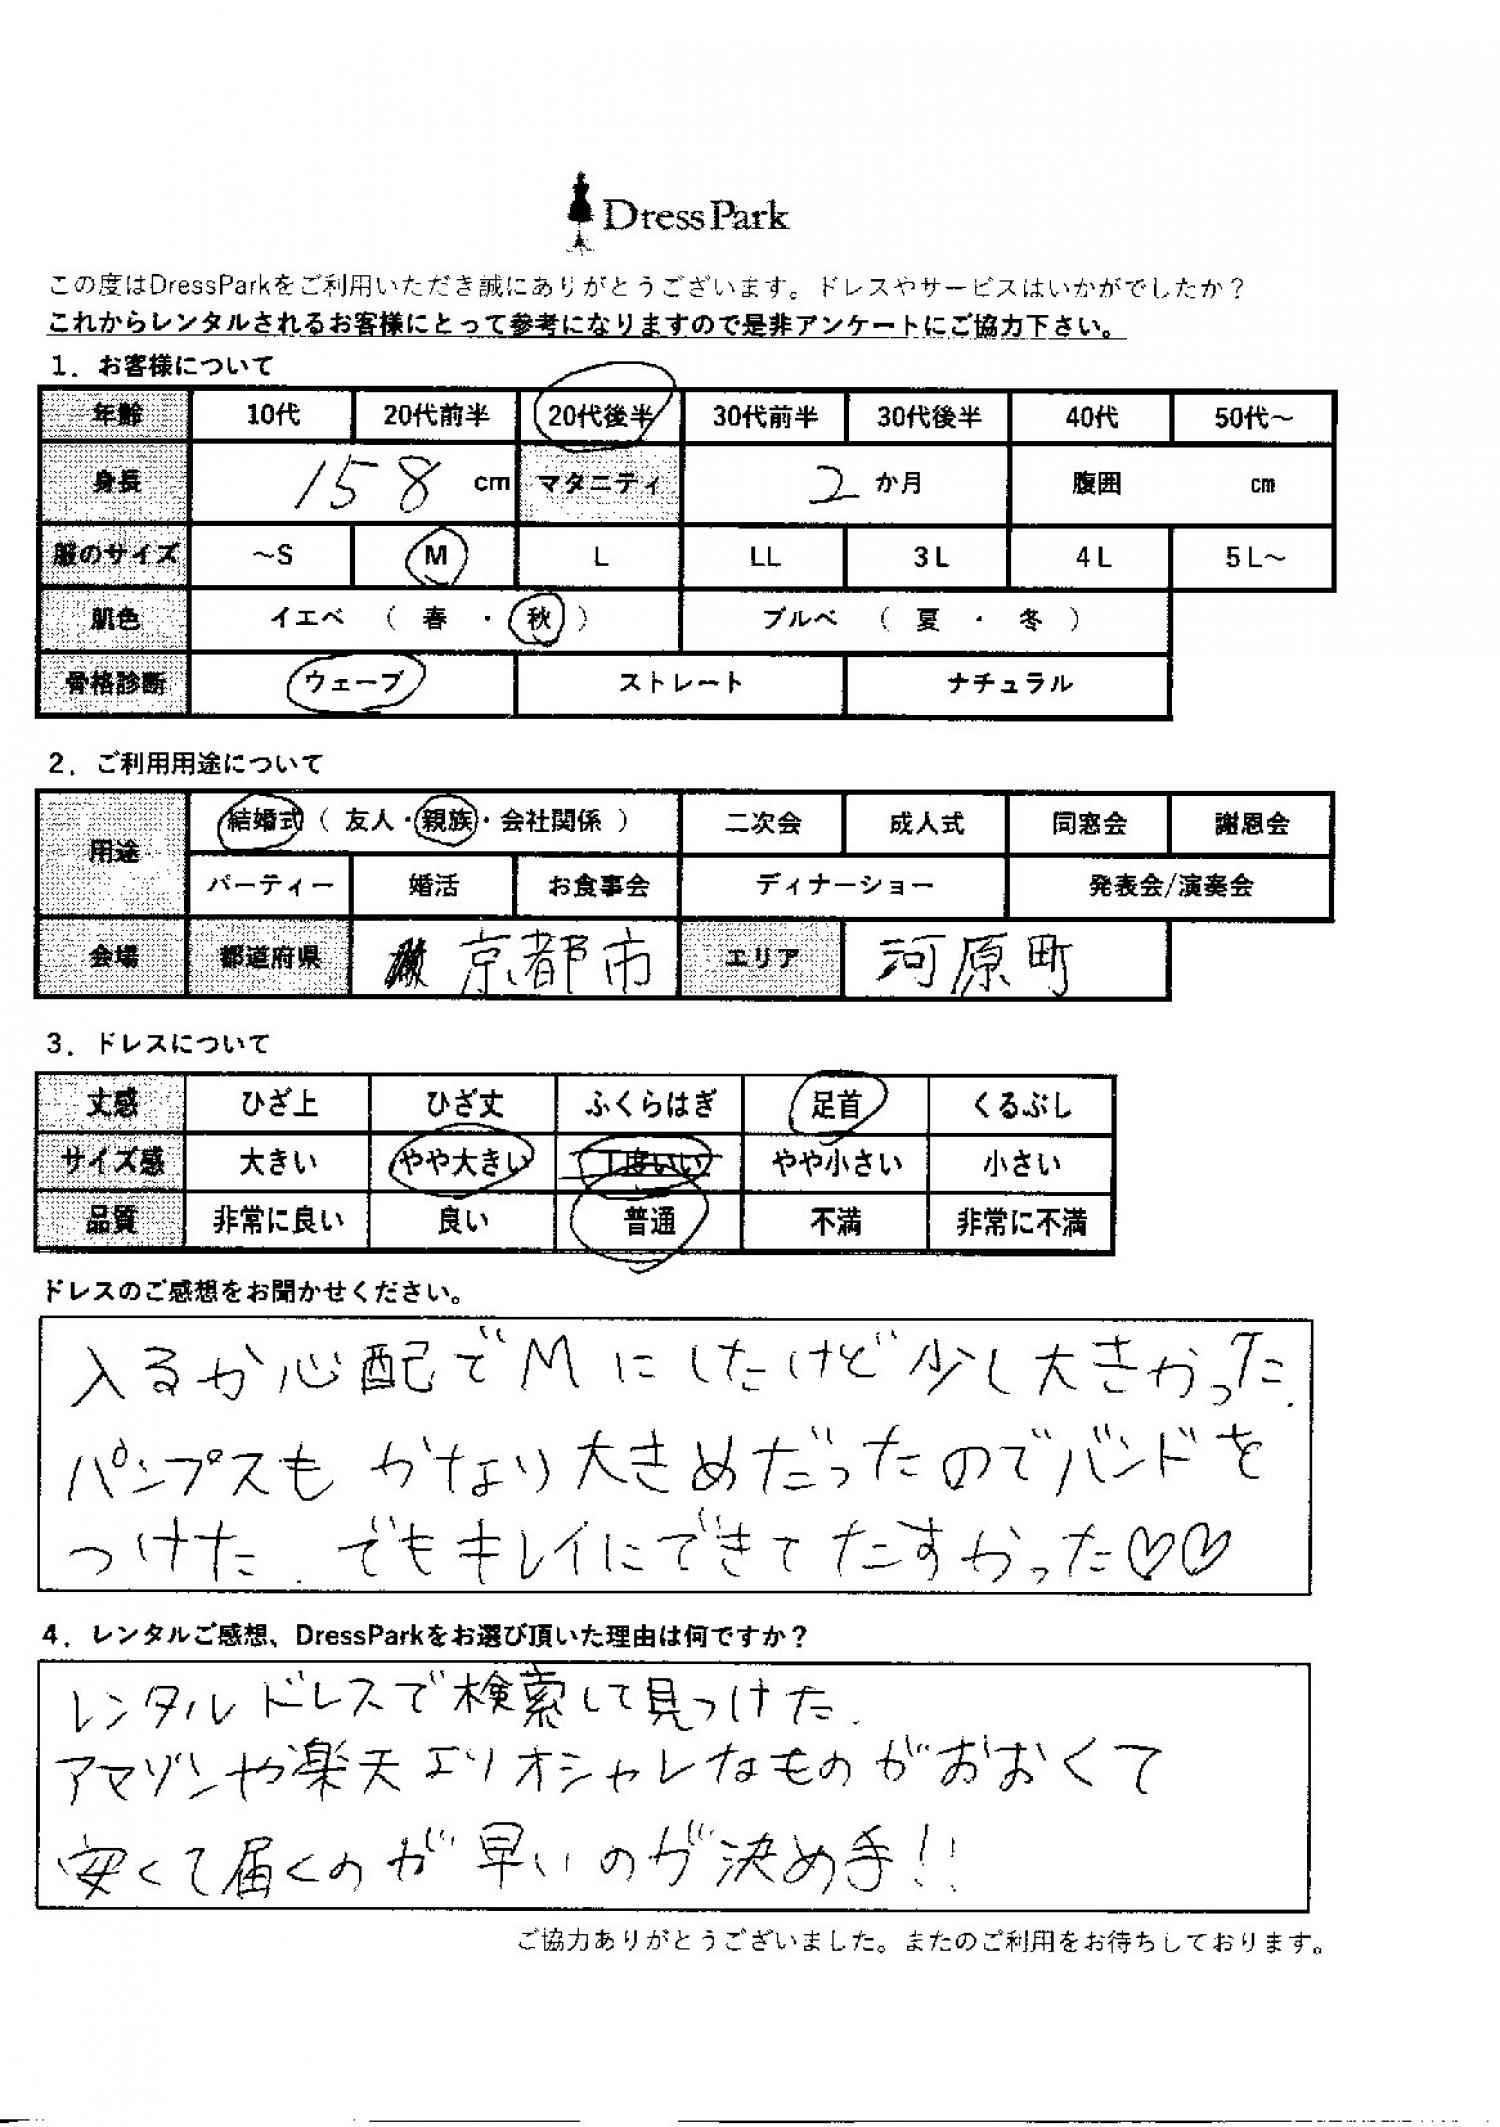 DressPark
この度はDressParkをご利用いただき誠にありがとうございます。ドレスやサービスはいかがでしたか？
これからレンタルされるお客様にとって参考になりますので是非アンケートにご協力下さい。
1．お客様について
年齢 10代 20代前半 20代後半 30代前半 30代後半 40代 50代～
身長 158 cm マタニティ 2 か月 腹囲 cm
服のサイズ ～S M L LL 3L 4L 5L～
肌色 イエベ （ 春 ・ 秋 ） ブルベ （ 夏 ・ 冬 ）
骨格診断 ウェーブ ストレート ナチュラル
2．ご利用用途について
用途 結婚式（ 友人・親族・会社関係 ） 二次会 成人式 同窓会 謝恩会
パーティー 婚活 お食事会 ディナーショー 発表会/演奏会
会場 都道府県 京都市 エリア 河原町
3．ドレスについて
丈感 ひざ上 ひざ丈 ふくらはぎ 足首 くるぶし
サイズ感 大きい やや大きい 丁度いい やや小さい 小さい
品質 非常に良い 良い 普通 不満 非常に不満
ドレスのご感想をお聞かせください。
入るか心配でMにしたけど少し大きかった.
パンプスもかなり大きめだったのでバンドを
つけた. でもキレイにできてたすかった♡♡
4．レンタルご感想、DressParkをお選び頂いた理由は何ですか？
レンタルドレスで検索して見つけた.
アマゾンや楽天よりオシャレなものがおおくて
安くて届くのが早いのが決め手!!
ご協力ありがとうございました。またのご利用をお待ちしております。